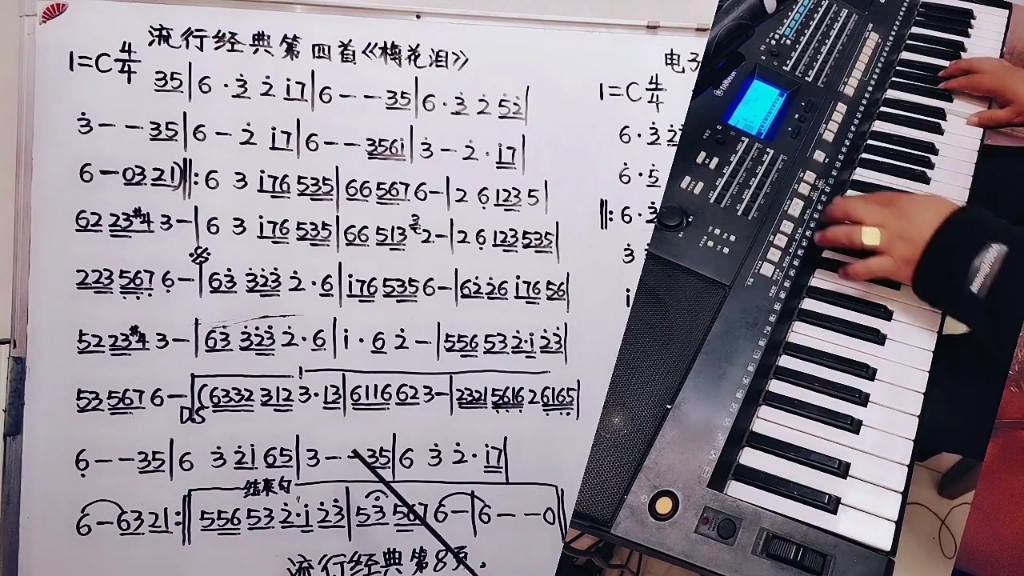 流行经典第四首《梅花泪》
1=C 4/4 35|6·3̇ 2̇ i7|6--35|6·3̇ 2̇ 5̇2̇|
3̇--35|6-2̇ i7|6--356i|3̇-2̇·i7|
6-0321)‖:6 3 i76 535|66 567 6-|2 6̣ 123 5|
62 23#4 3-|6 3 i76 535|66 513 2-|2 6̣ 123 535|
223 5̣6̣7̣ 6̣-|63̇ 3̇2̇3̇ 2̇·6|i76 535 6-|62̇2̇6 i76 56|
52 23#4 3-|63̇ 3̇2̇3̇ 2̇·6|i·6 2̇-|556 53 2̇·i 2̇3̇|
52 5̣6̣7̣ 6̣-|(6332 312 3·13|6116 623-|2321 5616 2 6165|
DS
6̣--35|6 3̇ 2̇i 65|3--35|6 3̇ 2̇·i7|
结束句
6-6321:‖556 53 2̇·i 2̇3̇|53̇ 567 6-|6--0‖
流行经典第8页.
电子
1=C 4/4
6·3̇
6·5
‖:6·3̇
3
i